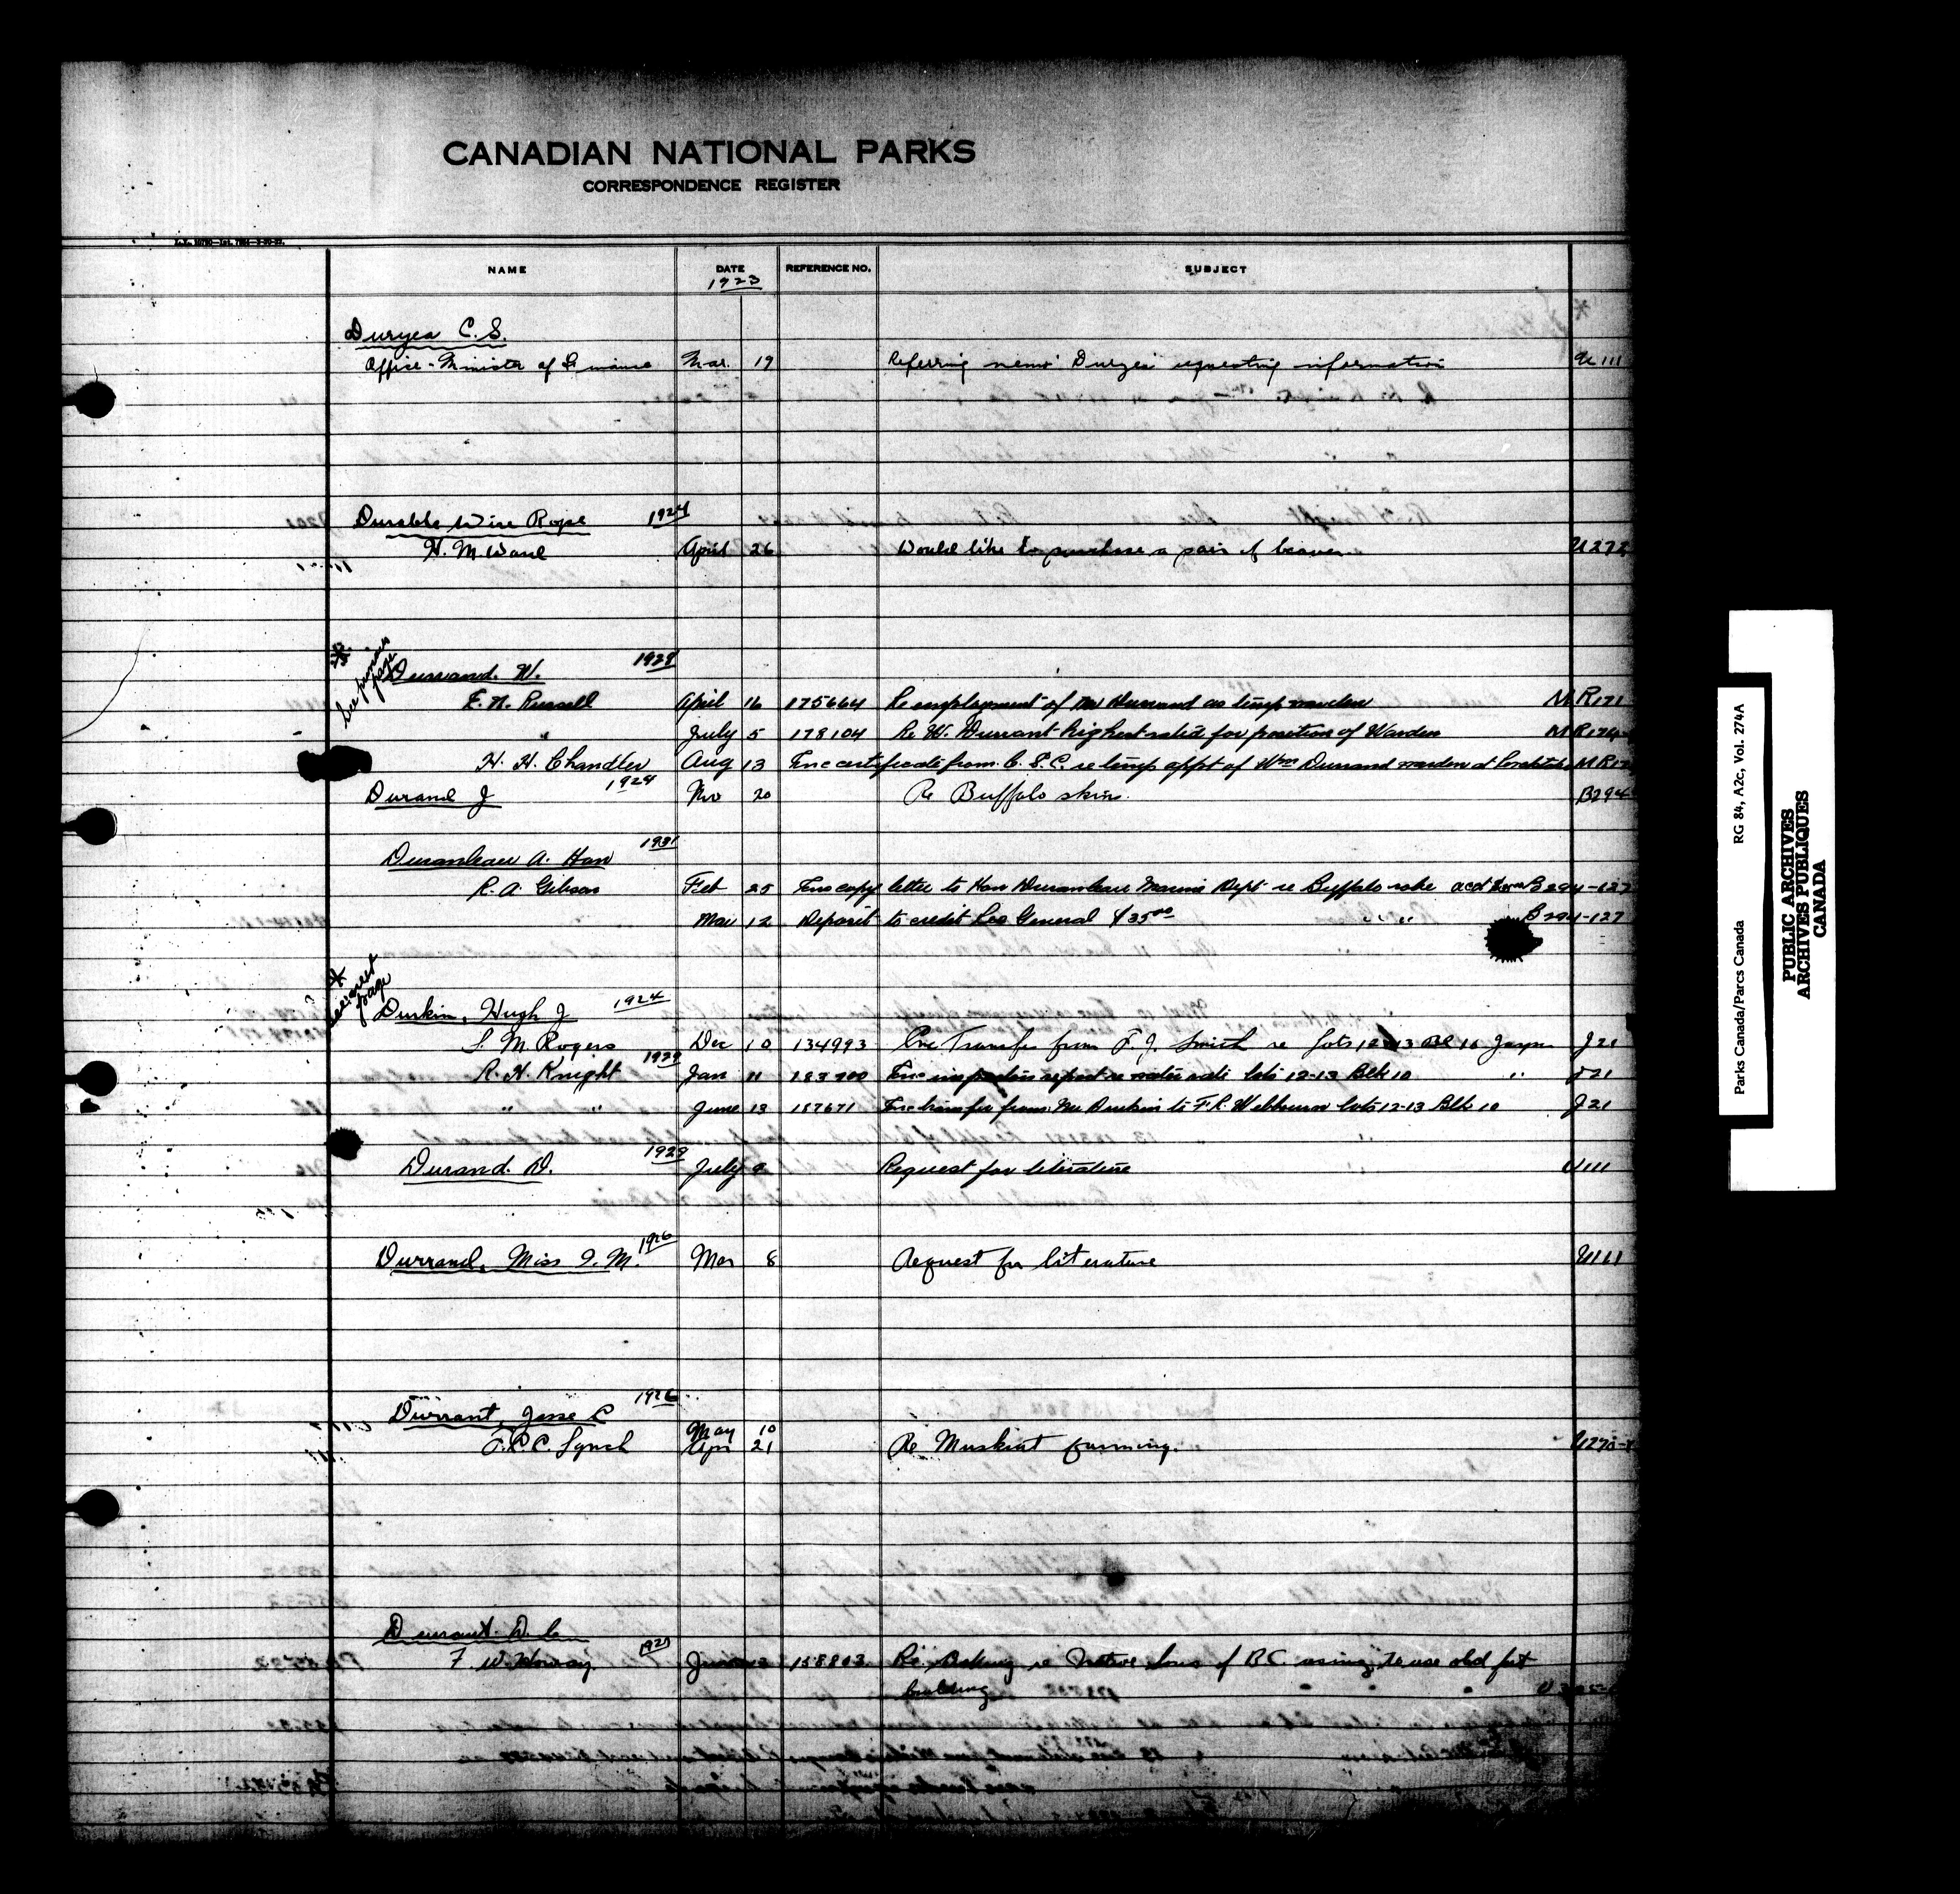 CANADIAN NATIONAL PARKS
CORRESPONDENCE REGISTER
NAME DATE REFERENCE NO. SUBJECT
1923
Duryea C. S.
Office - Minister of Finance Mar. 19 Referring memo Duryea requesting information U 111
Durable Wire Rope 1924
H. M. Ward April 26 Would like to purchase a pair of beaver U272
* See previous page
Durrand. W. 1929
April 16 175664 Re employment of Mr Durrand as temp warden MR171
" July 5 178104 Re W. Durrant highest rated for position of Warden MR174
H. H. Chandler Aug 13 Enc certificate from C.S.C. re temp appt of Wm Durrand warden at
Durand J 1924 Nov 20 Re Buffalo skin. B294
Duranleau A. Hon 1931
R. A. Gibson Feb 25 Enc copy letter to Hon Duranleau Marine Dept re Buffalo robe acct B294-127
Mar 12 Deposit to credit Rec General $35.00 " " B294-127
* See next page
Durkin, Hugh J 1924
S. M. Rogers Dec 10 134993 Enc Transfer from F. J. Smith re Lots 12-13 Bl 10 Jasper J21
R. H. Knight 1929 Jan 11 Enc inspection report re water rate lots 12-13 Blk 10 " J21
" " June 13 187671 Enc transfer from Mr Durkin to F. R. lots 12-13 Blk 10 J21
Durand. D. 1929 July 9 Request for literature U111
Durrand, Miss I. M. 1926 Mar 8 Request for literature U111
Durrant, Jesse C 1926
May 10
F.C.C. Lynch Apr 21 Re Muskrat farming.
Durrant. D. C.
F. W. Howay 1927 June 158803 Re Asking re Native Sons of B.C. to use old fort
building
Parks Canada/Parcs Canada RG 84, A2c, Vol. 274A
PUBLIC ARCHIVES
ARCHIVES PUBLIQUES
CANADA